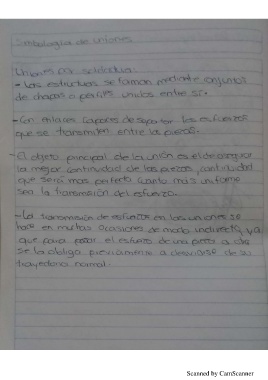 Simbologia de uniones
Uniones por soldadura
- Las estructuras se forman mediante conjuntos
de chapas o perfiles unidos entre si.
- Con enlaces capaces de soportar los esfuerzos
que se transmiten entre la piezas.
- El objeto principal de la union es el de asegurar
la mejor continuidad de las piezas, continuidad
que será mas perfecta cuanto más uniforme
sea la transmisión del esfuerzo.
- La transmisión de esfuerzos en las uniones se
hace en muchas ocasiones de modo indirecto, ya
que para pasar el esfuerzo de una pieza a otra
se la obliga previamente a desviarse de su
trayectoria normal.
Scanned by CamScanner